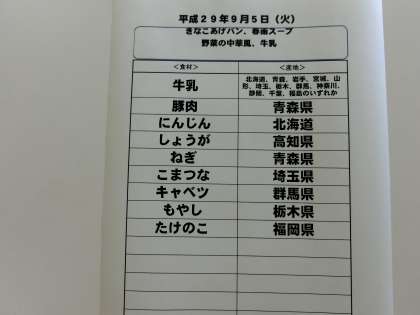 平成29年9月5日（火）
きなこあげパン、春雨スープ
野菜の中華風、牛乳
＜食材＞ ＜産地＞
牛乳 北海道、青森、岩手、宮城、山
形、埼玉、栃木、群馬、神奈川、
静岡、千葉、福島のいずれか
豚肉 青森県
にんじん 北海道
しょうが 高知県
ねぎ 青森県
こまつな 埼玉県
キャベツ 群馬県
もやし 栃木県
たけのこ 福岡県